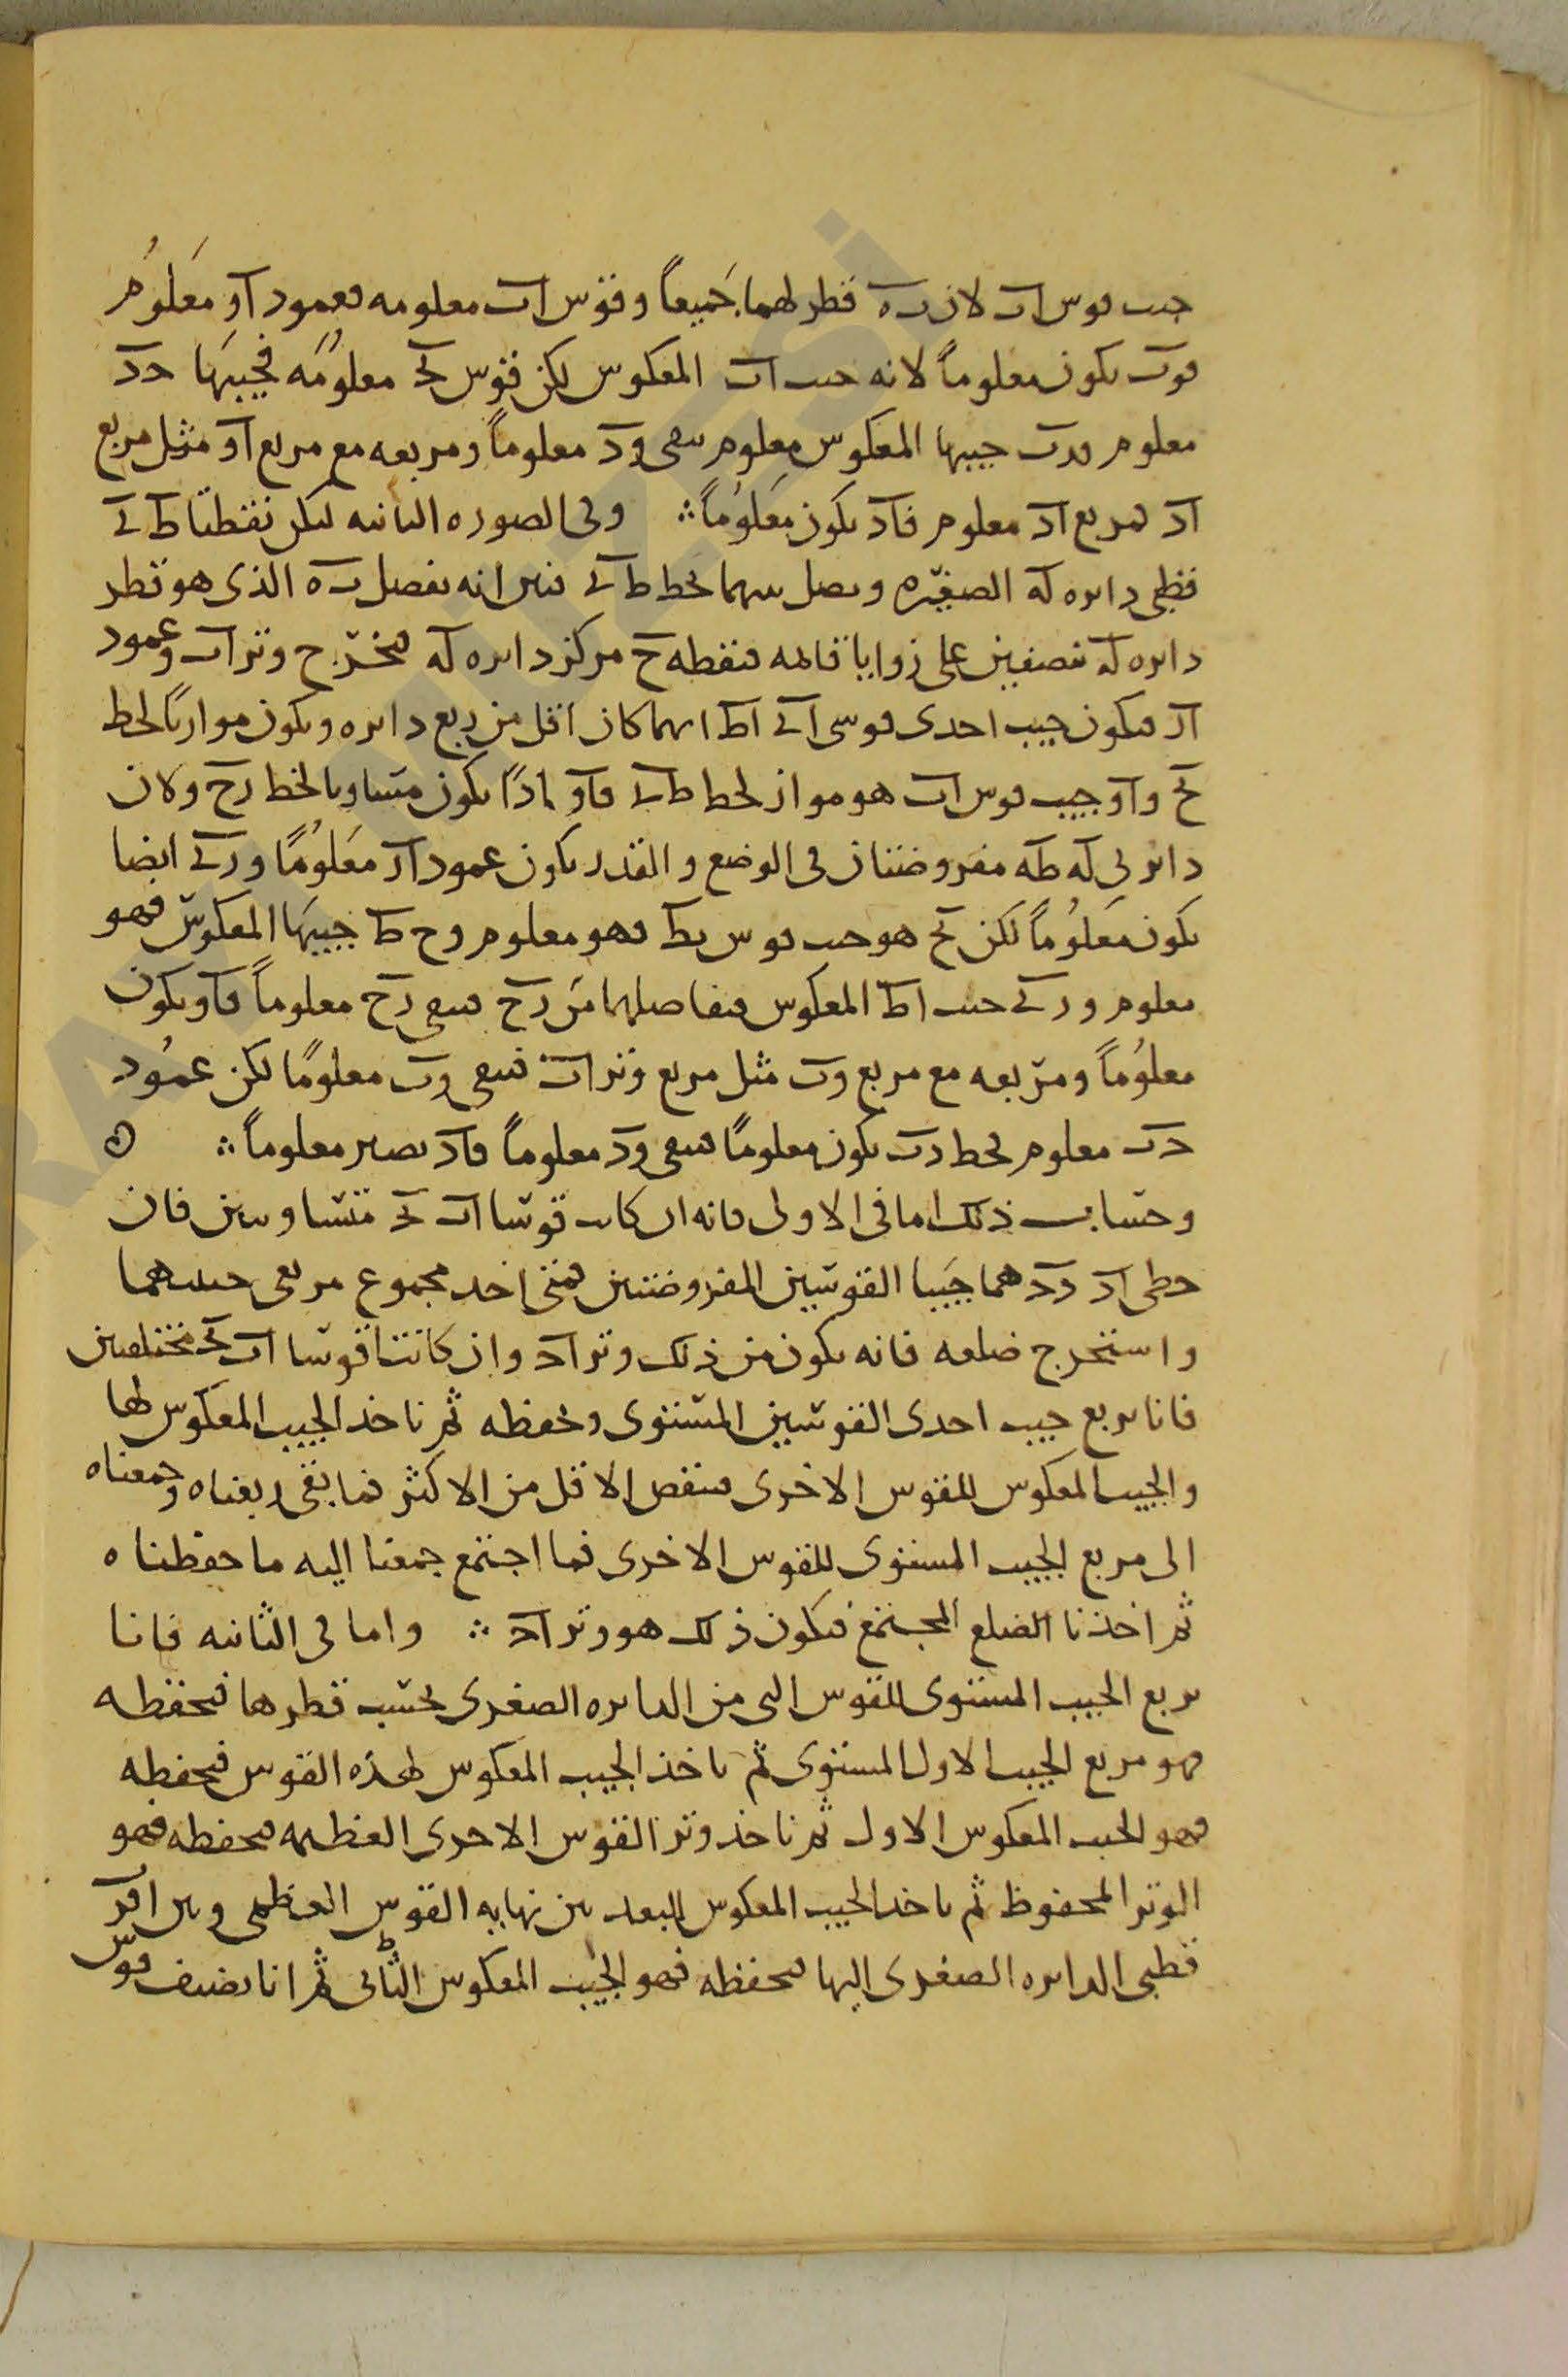 جيب قوس اب لان ب ه قطر لهما جميعاً وقوس اب معلومه فعمود او معلوم
فوب يكون معلوماً لانه جيب اب المعكوس لكن قوس بج معلومه فجيبها دد
معلوم ودب جيبها المعكوس معلوم يبقى ود معلوماً ومربعه مع مربع او مثل مربع
اد فمربع اد معلوم فاد يكون معلوماً ∴ وفى الصوره الثانيه ليكن نقطتا ط ك
قطبى دايره له الصغيره ونصل بينهما بخط ط ك فبين انه يفصل ب ه الذى هو قطر
دايره له بنصفين على زوايا قايمه فنقطه ح مركز دايره له فنخرج وتر اب وعمود
ار فيكون جيب احدى قوسى اك اط ايهما كان اقل من ربع دايره ويكون موازياً لخط
بح واو جيب قوس اب هو مواز لخط ط ك فاو اذاً يكون متساويا لخط رح ولان
دايرتى له طه مفروضتان فى الوضع والقدر يكون عمود ار معلوماً ورك ايضا
يكون معلوماً لكن بح هو جيب قوس بط فهو معلوم وح ط جيبها المعكوس فهو
معلوم ورك جيب اط المعكوس فتفاضلهما من رح فيبقى رح معلوماً فاو يكون
معلوماً ومربعه مع مربع وب مثل مربع وتر اب فيبقى وب معلوماً لكن عمود
دب معلوم فخط دب يكون معلوماً فيبقى ود معلوماً فاد يصير معلوماً ∴ ه
وحساب ذلك اما فى الاولى فانه ان كانت قوسا اب بج متساويتين فان
خطى اد دد هما جيبا القوسين المفروضتين فمتى اخذ مجموع مربعى جيبيهما
واستخرج ضلعه فانه يكون من ذلك وتر اد وان كانتا قوسا اب بج مختلفتين
فانا نربع جيب احدى القوسين المستوى ونحفظه ثم ناخذ الجيب المعكوس لها
والجيب المعكوس للقوس الاخرى فننقص الاقل من الاكثر فما بقى ربعناه وجمعناه
الى مربع الجيب المستوى للقوس الاخرى فما اجتمع جمعنا اليه ما حفظناه
ثم اخذنا الضلع المجتمع فيكون ذلك هو وتر اد ∴ واما فى الثانيه فانا
نربع الجيب المستوى للقوس التى من الدايره الصغرى بحسب قطرها فنحفظه
فهو مربع الجيب الاول المستوى ثم ناخذ الجيب المعكوس لهذه القوس فنحفظه
فهو الجيب المعكوس الاول ثم ناخذ وتر القوس الاخرى العظيمه فنحفظه فهو
الوتر المحفوظ ثم ناخذ الجيب المعكوس للبعد بين نهايه القوس العظمى وبين اقرب
قطبى الدايره الصغرى اليها فنحفظه فهو الجيب المعكوس الثانى ثم انا نضيف قوس